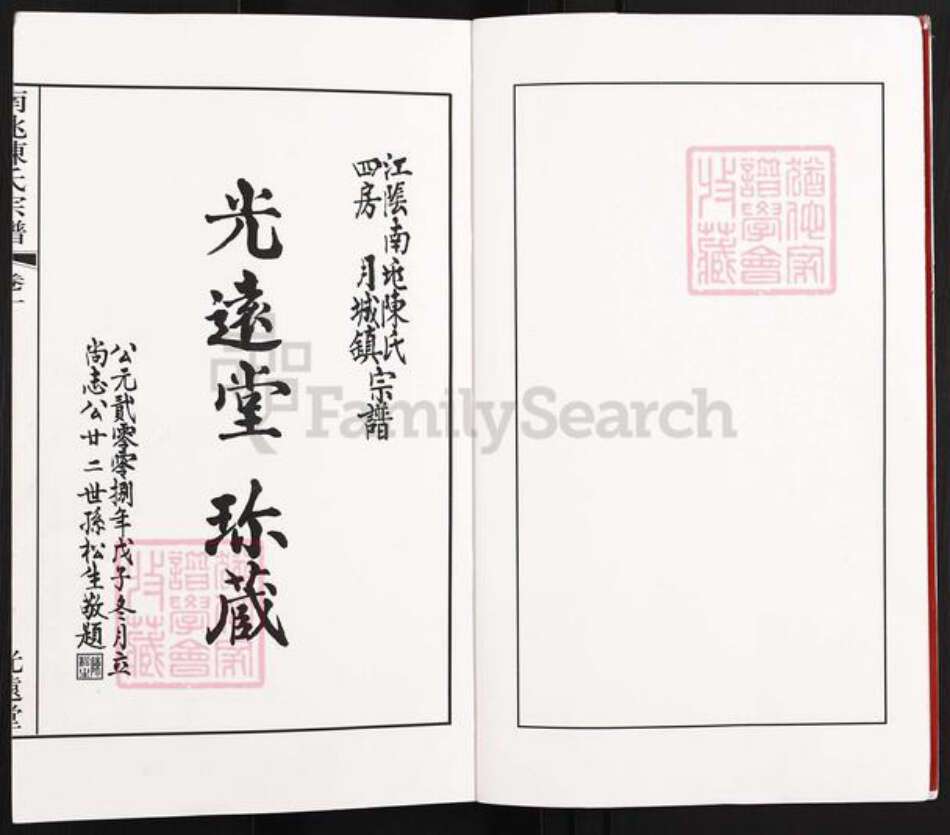 猶他家
譜學會
收藏
江陰南兆陳氏
四房 月城鎮
宗譜
光遠堂 珎蔵
公元貳零零捌年戊子冬月立
尚志公廿二世孫松生敬題
猶他家
譜學會
收藏
南兆陳氏宗譜 卷一 光遠堂
FamilySearch